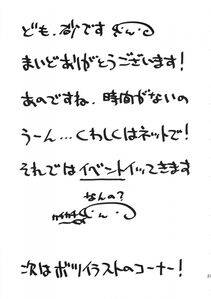 ども、砂です
まいどありがとうございます!
あのですね、時間がないの
うーん...くわしくはネットで!
それではイベントイッてきます
なんの?
次はボツイラストのコーナー!